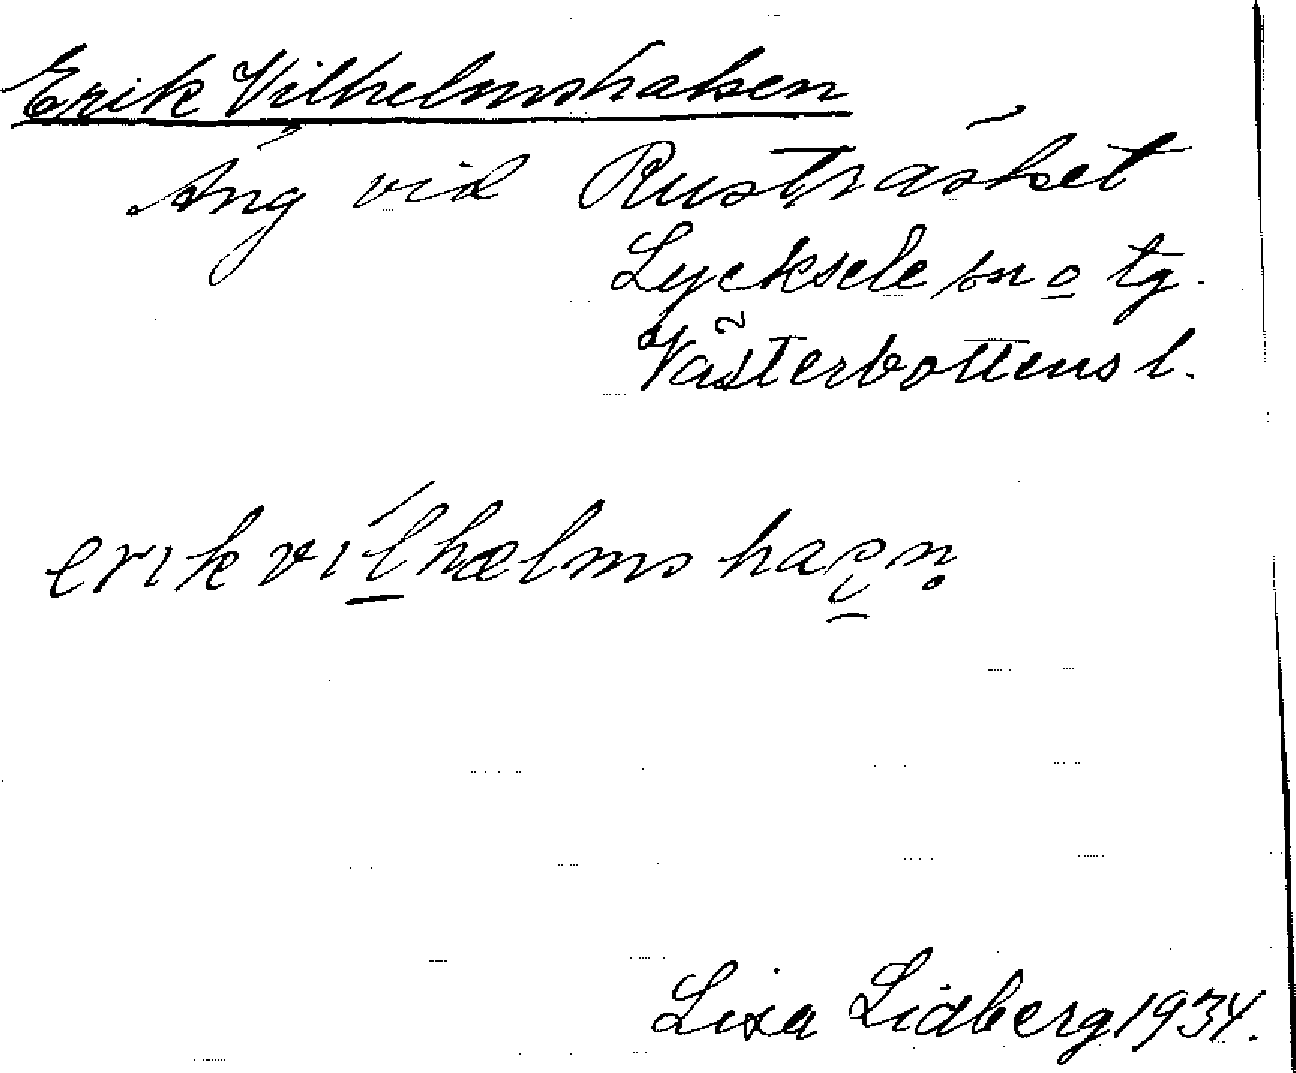 Erik Vilhelmshalsen
Äng vid Rusträsket
Lycksele sn o tg.
Västerbottens l.
erik vilhælms hasn
Lisa Lidberg 1934.